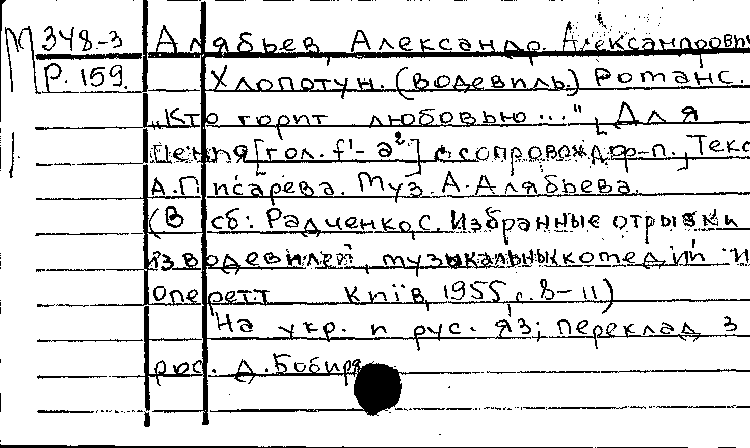 М 348-3 Алябьев, Александр Александрович
Р. 159. Хлопотун. (водевиль.) Романс.
„Кто горит любовью...", Для
пения [гол. f'-a²] с сопровожд. ф-п., Текс
А. Писарева. Муз. А. Алябьева.
(В сб: Радченко, С. Избранные отрывки
из водевилей, музыкальных комедий и
оперетт Київ, 1955, с. 8-11)
На укр. и рус. яз; переклад з
рос. Д. Бобиря